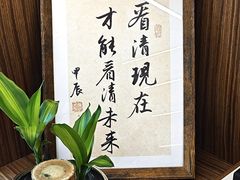 看清現在
才能看清未来
甲辰